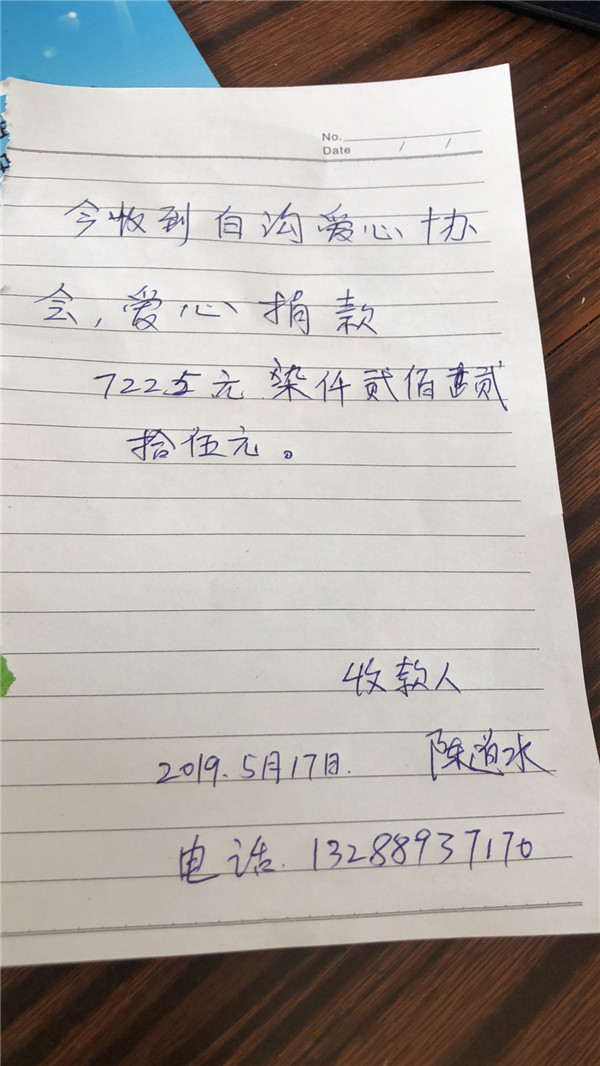 No.
Date / /
今收到白沟爱心协
会,爱心捐款
7225元 柒仟贰佰贰
拾伍元。
收款人
2019.5月17日. 陈道水
电话.13288937170